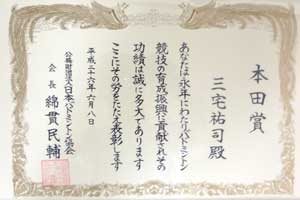 本田賞
三宅祐司殿
あなたは永年にわたりバドミントン
競技の育成振興に貢献されその
功績は誠に多大であります
ここにその労をたたえ表彰します
平成二十六年六月八日
公益財団法人日本バドミントン協会
会長 綿貫民輔